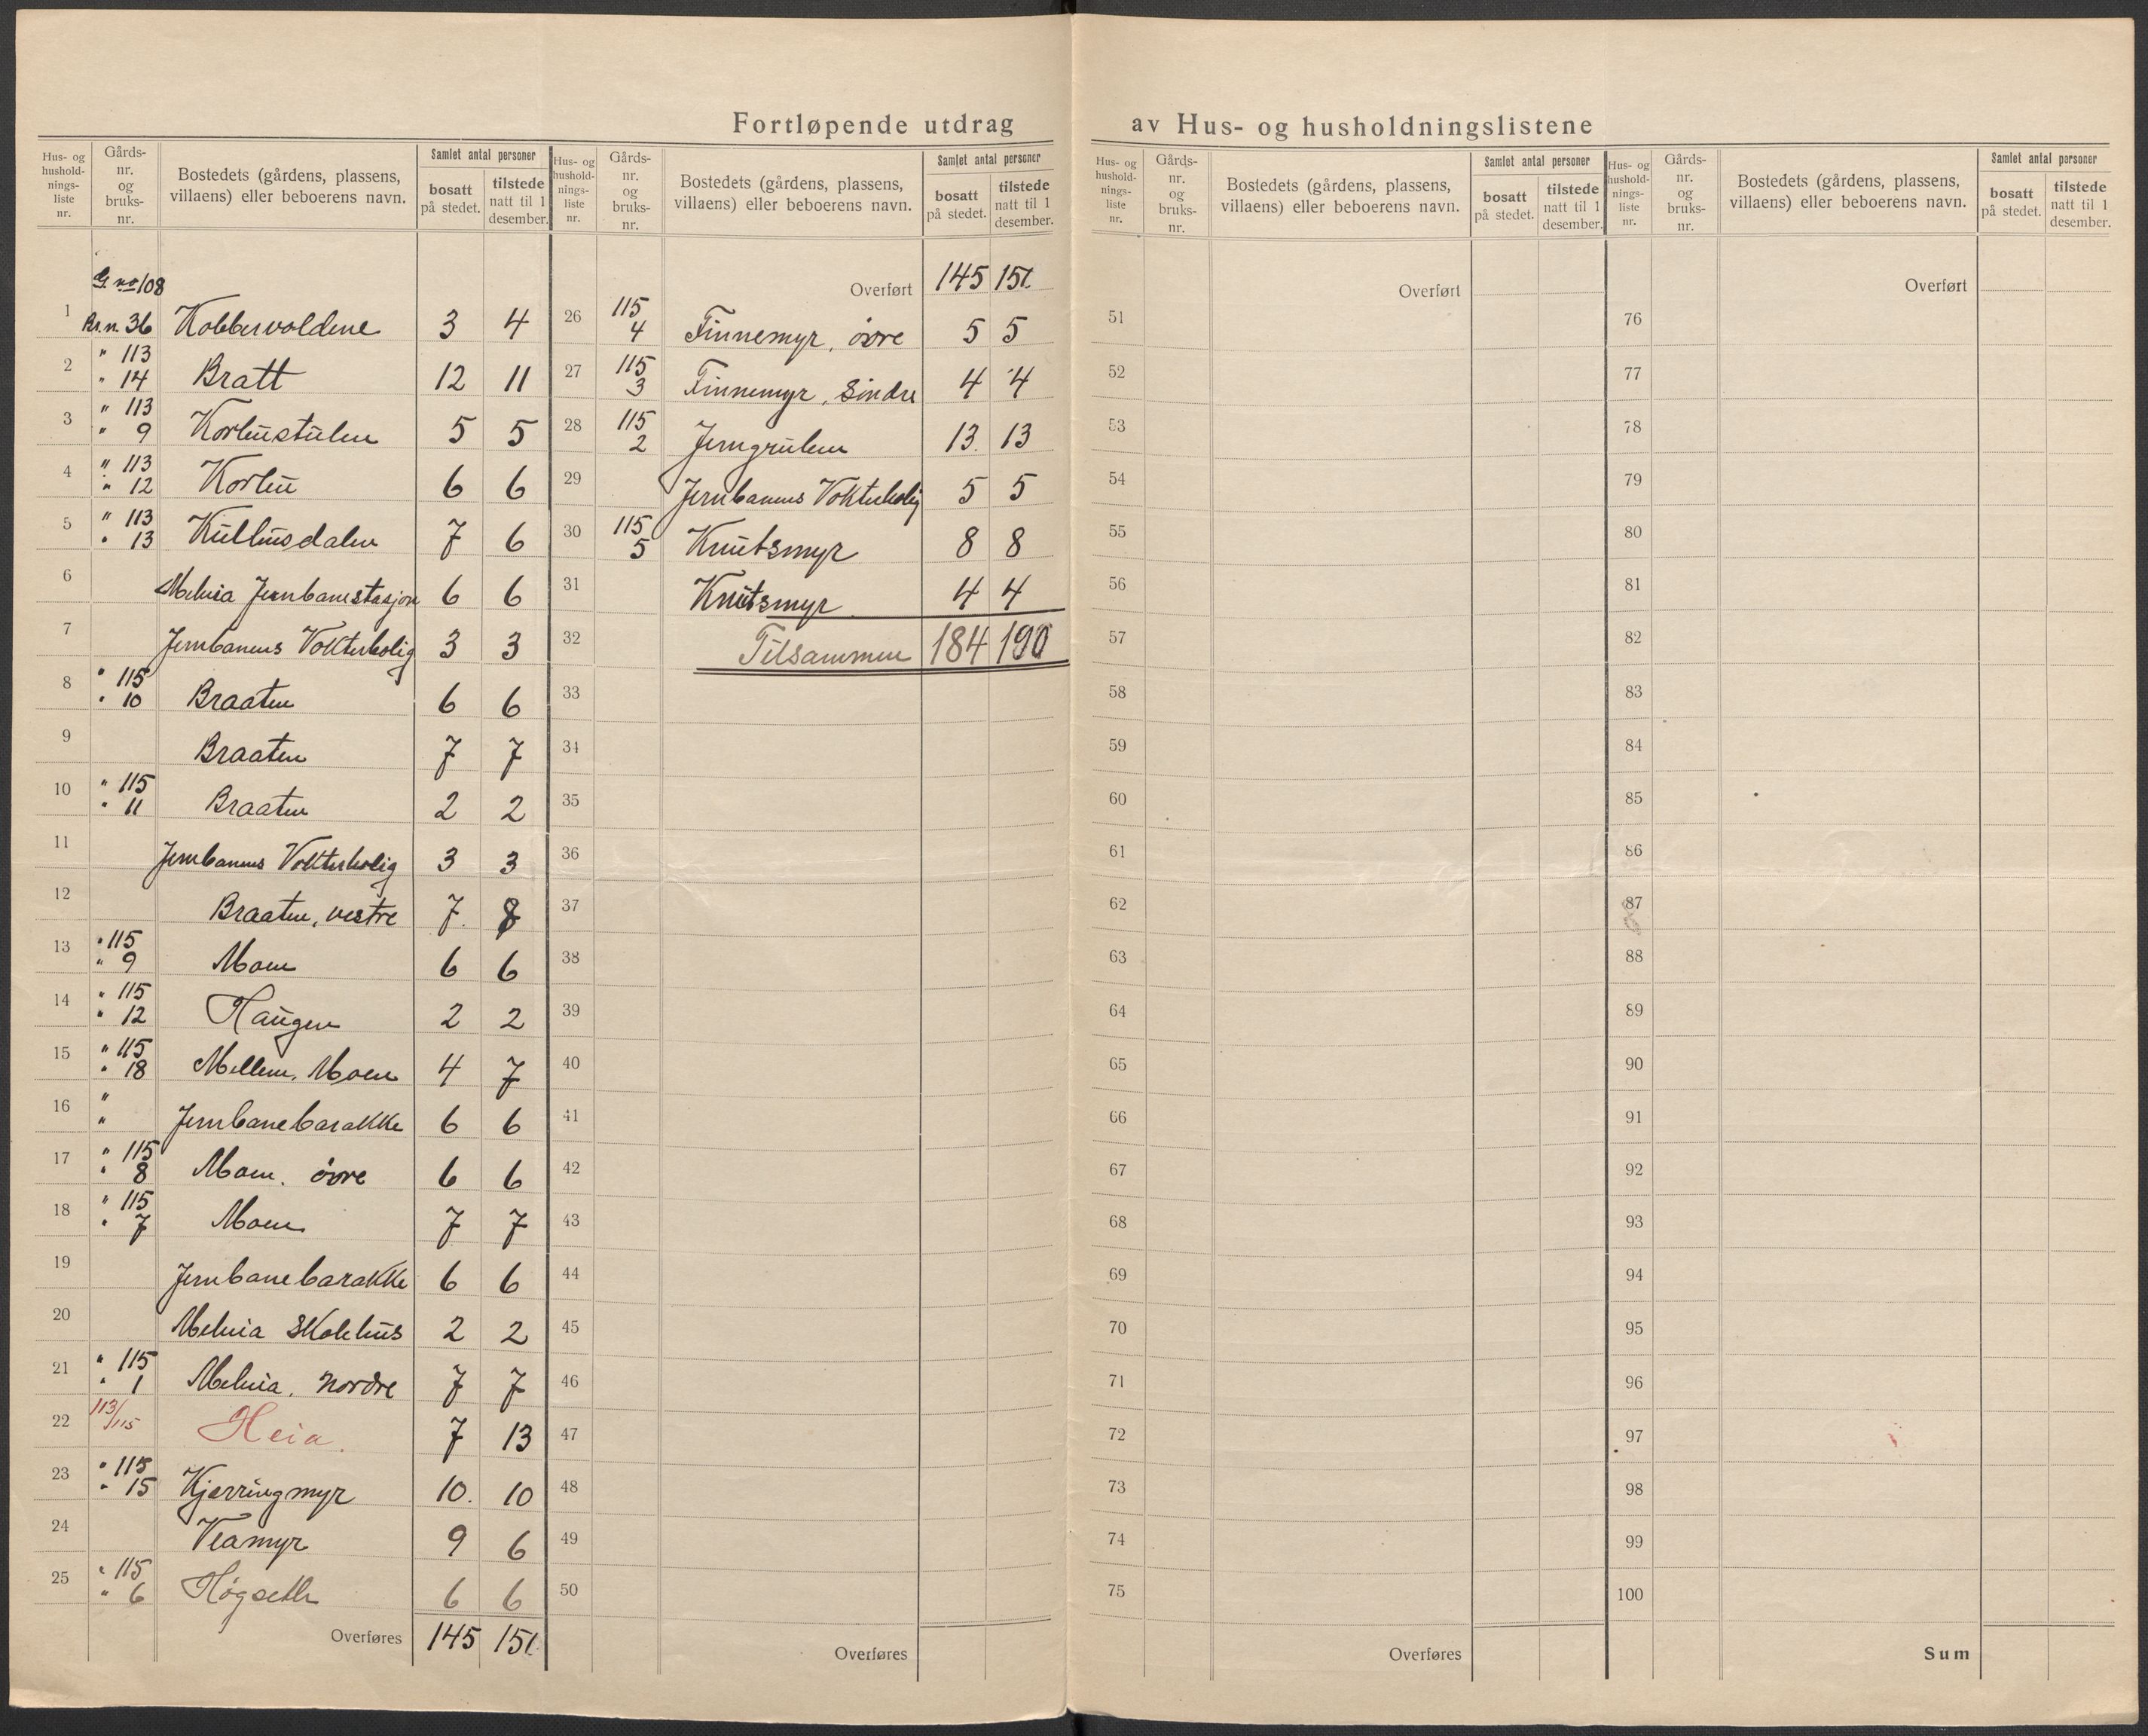 Fortløpende utdrag av Hus- og husholdningslistene
Hus- og hushold-nings-liste nr. Gårds-nr. og bruks-nr. Bostedets (gårdens, plassens, villaens) eller beboerens navn. Samlet antal personer bosatt på stedet. tilstede natt til 1 desember.
G. no 108
1 Br.n. 36 Kobbervoldene 3 4
2 " 113 " 14 Bratt 12 11
3 " 113 " 9 Korhustulen 5 5
4 " 113 " 12 Korhu 6 6
5 " 113 " 13 Kullhusdalen 7 6
6 Meheia Jernbanestasjon 6 6
7 Jernbanens Vokterbolig 3 3
8 " 115 " 10 Braaten 6 6
9 Braaten 7 7
10 " 115 " 11 Braaten 2 2
11 Jernbanens Vokterbolig 3 3
12 Braaten, vestre 7. 8
13 " 115 " 9 Moen 6 6
14 " 115 " 12 Haugen 2 2
15 " 115 " 18 Mellem. Moen 4 7
16 " " Jernbanebarakke 6 6
17 " 115 " 8 Moen. övre 6 6
18 " 115 " 7 Moen 7 7
19 Jernbanebarakke 6 6
20 Meheia Skolehus 2 2
21 " 115 " 1 Meheia. Nordre 7 7
22 113/115 Heia. 7 13
23 " 115 " 15 Kjerringmyr 10. 10
24 Veamyr 9 6
25 " 115 " 6 Høgseth 6 6
Overføres 145 151.
Hus- og hushold-nings-liste nr. Gårds-nr. og bruks-nr. Bostedets (gårdens, plassens, villaens) eller beboerens navn. Samlet antal personer bosatt på stedet. tilstede natt til 1 desember.
Overført 145 151.
26 115 4 Finnemyr, övre 5 5
27 115 3 Finnemyr, Söndre 4 4
28 115 2 Jerngruben 13. 13
29 Jernbanens Vokterbolig 5 5
30 115 5 Knutsmyr 8 8
31 Knutsmyr 4 4
32 Tilsammen 184 190
33
34
35
36
37
38
39
40
41
42
43
44
45
46
47
48
49
50
Overføres
Hus- og hushold-nings-liste nr. Gårds-nr. og bruks-nr. Bostedets (gårdens, plassens, villaens) eller beboerens navn. Samlet antal personer bosatt på stedet. tilstede natt til 1 desember.
Overført
51
52
53
54
55
56
57
58
59
60
61
62
63
64
65
66
67
68
69
70
71
72
73
74
75
Overføres
Hus- og hushold-nings-liste nr. Gårds-nr. og bruks-nr. Bostedets (gårdens, plassens, villaens) eller beboerens navn. Samlet antal personer bosatt på stedet. tilstede natt til 1 desember.
Overført
76
77
78
79
80
81
82
83
84
85
86
87
88
89
90
91
92
93
94
95
96
97
98
99
100
Sum